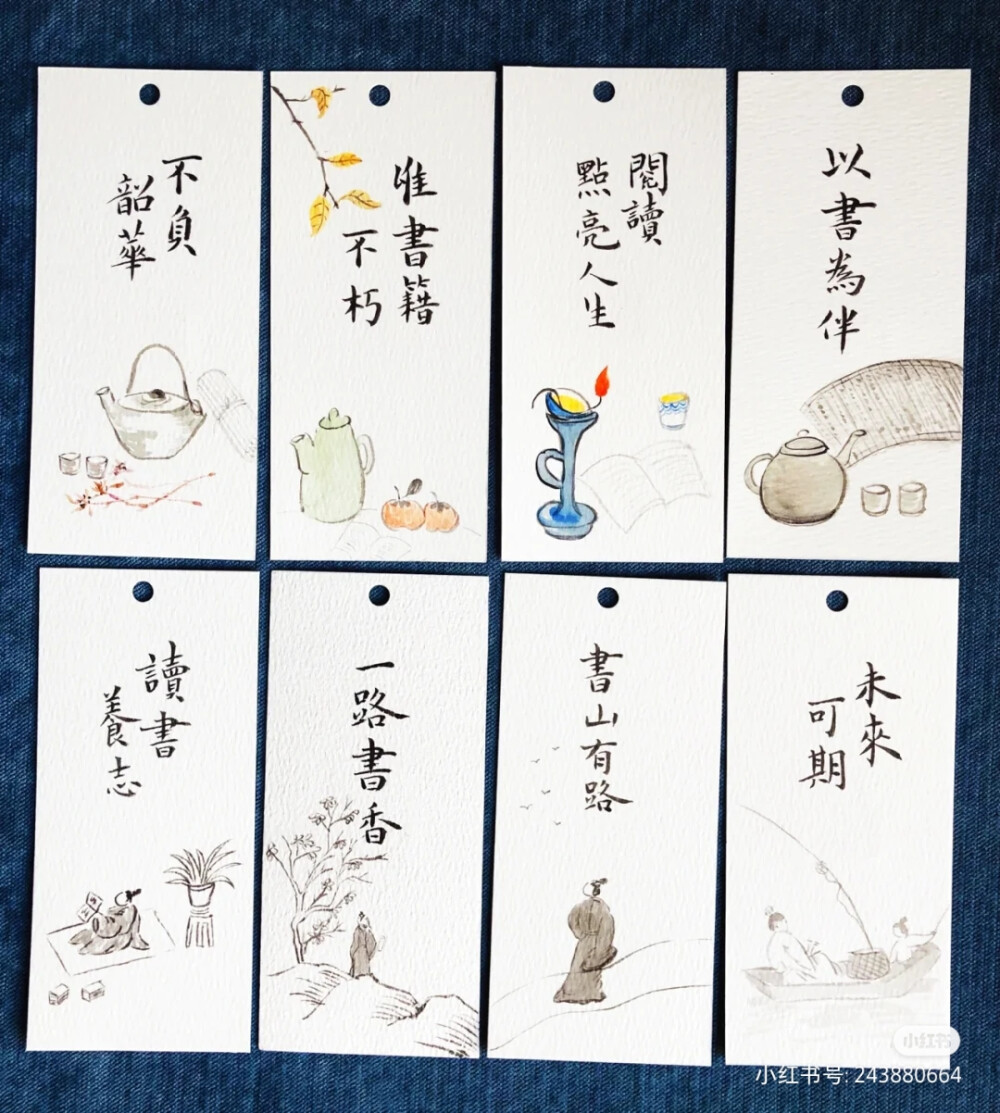 不負
韶華
唯書籍
不朽
閱讀
點亮人生
以書為伴
讀書
養志
一路書香
書山有路
未來
可期
小红书
小红书号: 243880664